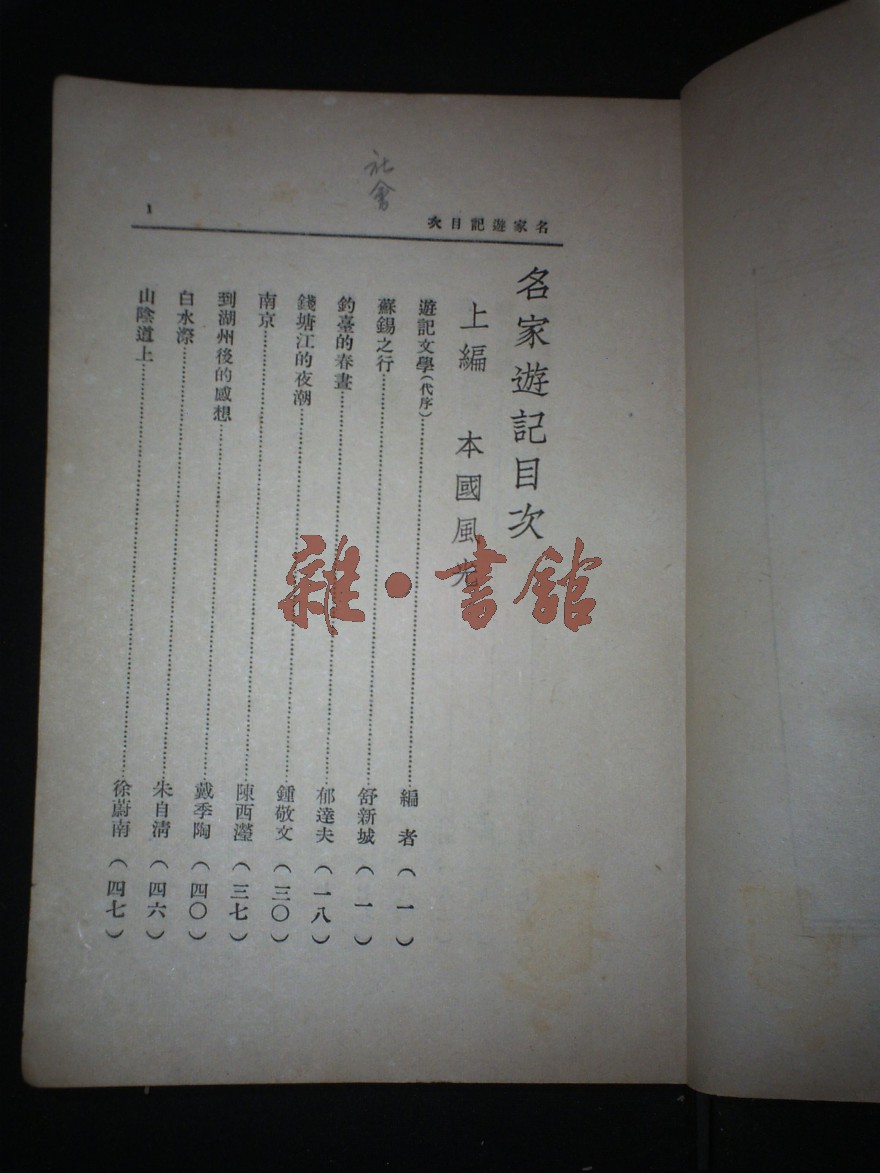 社會
名家遊記目次
1
名家遊記目次
上編 本國風光
遊記文學(代序)……編者(一)
蘇錫之行……舒新城(一)
釣臺的春晝……郁達夫(一八)
錢塘江的夜潮……鍾敬文(三〇)
南京……陳西瀅(三七)
到湖州後的感想……戴季陶(四〇)
白水漈……朱自清(四六)
山陰道上……徐蔚南(四七)
雜·書館